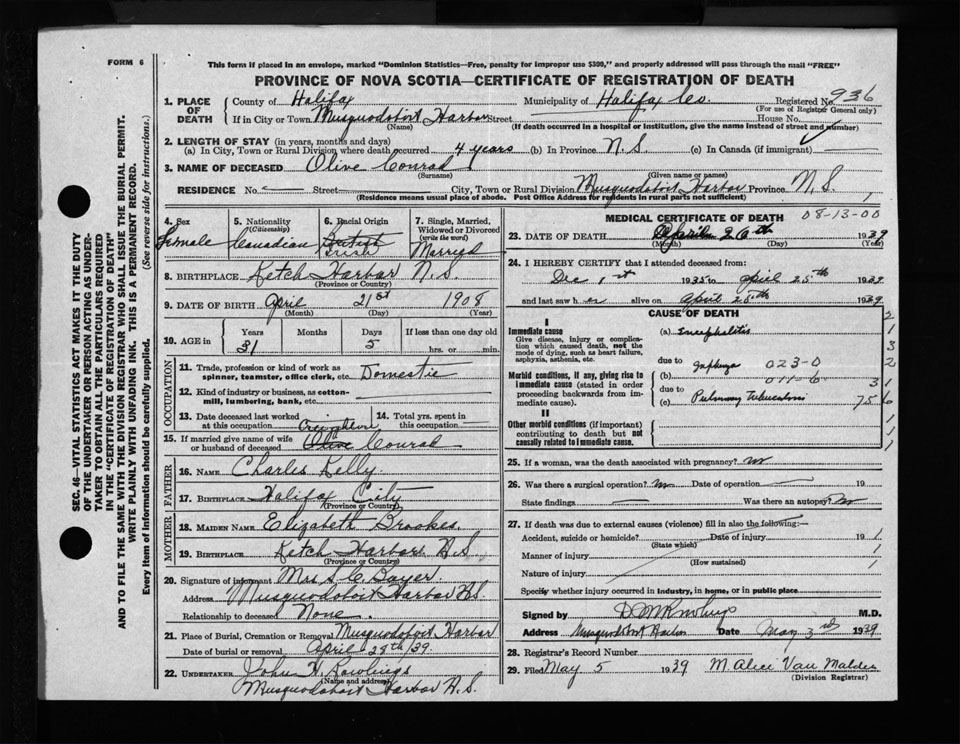 FORM 6
This form if placed in an envelope, marked "Dominion Statistics—Free, penalty for improper use $300," and properly addressed will pass through the mail "FREE"
PROVINCE OF NOVA SCOTIA—CERTIFICATE OF REGISTRATION OF DEATH
SEC. 46—VITAL STATISTICS ACT MAKES IT THE DUTY
OF THE UNDERTAKER OR PERSON ACTING AS UNDER-
TAKER TO OBTAIN ALL THE PARTICULARS REQUIRED
IN THE "CERTIFICATE OF REGISTRATION OF DEATH"
AND TO FILE THE SAME WITH THE DIVISION REGISTRAR WHO SHALL ISSUE THE BURIAL PERMIT.
WRITE PLAINLY WITH UNFADING INK. THIS IS A PERMANENT RECORD.
Every item of information should be carefully supplied. (See reverse side for instructions.)
1. PLACE OF DEATH
County of Halifax Municipality of Halifax Co. Registered No. 936
(For use of Registrar General only)
If in City or Town Musquodoboit Harbor Street House No.
(Name) (If death occurred in a hospital or institution, give the name instead of street and number)
2. LENGTH OF STAY (in years, months and days)
(a) In City, Town or Rural Division where death occurred 4 years (b) In Province N.S. (c) In Canada (if immigrant)
3. NAME OF DECEASED Olive Conrad
(Surname) (Given name or names)
RESIDENCE No. Street City, Town or Rural Division Musquodoboit Harbor Province N.S.
(Residence means usual place of abode. Post Office Address for residents in rural parts not sufficient) 1
4. Sex
Female
5. Nationality
(Citizenship)
Canadian
6. Racial Origin
British
Irish
7. Single, Married,
Widowed or Divorced
(write the word)
Married
8. BIRTHPLACE Ketch Harbor N.S.
(Province or Country)
9. DATE OF BIRTH April 21st 1908
(Month) (Day) (Year)
10. AGE in
Years Months Days If less than one day old
31 5 hrs. or min.
OCCUPATION
11. Trade, profession or kind of work as
spinner, teamster, office clerk, etc. Domestic
12. Kind of industry or business, as cotton-
mill, lumbering, bank, etc.
13. Date deceased last worked
at this occupation
14. Total yrs. spent in
this occupation
15. If married give name of wife
or husband of deceased Olive Conrad
FATHER
16. NAME Charles Kelly
17. BIRTHPLACE Halifax City
(Province or Country)
MOTHER
18. MAIDEN NAME Elizabeth Brookes
19. BIRTHPLACE Ketch Harbor N.S.
(Province or Country)
20. Signature of informant Mrs S. C. Bayer
Address Musquodoboit Harbor N.S.
Relationship to deceased None
21. Place of Burial, Cremation or Removal Musquodoboit Harbor
Date of burial or removal April 28th/39.
22. UNDERTAKER John H. Rowlings
(Name and address)
Musquodoboit Harbor N.S.
MEDICAL CERTIFICATE OF DEATH 08-13-00
23. DATE OF DEATH April 26th 1939
(Month) (Day) (Year)
24. I HEREBY CERTIFY that I attended deceased from:
Dec 1st 1935 to April 25th 1939
and last saw her alive on April 25th 1939
CAUSE OF DEATH
I
Immediate cause
Give disease, injury or complica-
tion which caused death, not the
mode of dying, such as heart failure,
asphyxia, asthenia, etc.
(a) Encephalitis
due to
023-0
Morbid conditions, if any, giving rise to
immediate cause (stated in order
proceeding backwards from im-
mediate cause).
(b)
011-6
due to
(c) Pulmonary Tuberculosis 756
II
Other morbid conditions (if important)
contributing to death but not
causally related to immediate cause.
25. If a woman, was the death associated with pregnancy? no
26. Was there a surgical operation? no Date of operation 19
State findings Was there an autopsy? no
27. If death was due to external causes (violence) fill in also the following:
Accident, suicide or homicide? Date of injury 19
(State which)
Manner of injury
(How sustained)
Nature of injury
Specify whether injury occurred in industry, in home, or in public place
Signed by M.D.
Address Musquodoboit Harbor Date May 3rd 1939
28. Registrar's Record Number
29. Filed May 5 1939 M. Alice Van Malder
(Division Registrar)